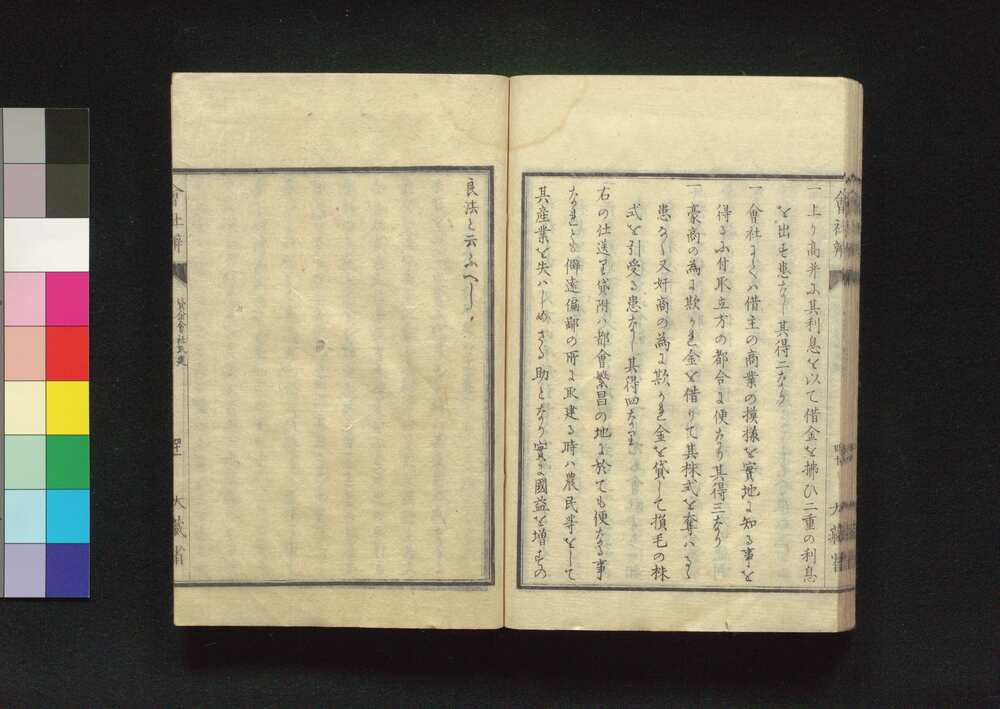 一上り高并ニ其利息を以て借金を拂ひ二重の利息
を出も患なし其得二なり
一會社よりハ借主の商業の摸様を實地ニ知る事を
得るニ付取立方の都合ニ便なり其得三なり
一豪商の為ニ欺かれ金を借りて其株式を奪ハるゝ
患なく又奸商の為ニ欺かれ金を貸して損毛の株
式を引受る患なし其得四なり
右の仕送り貸附ハ都會繁昌の地ニ於ても便なる事
なれとも僻遠偏鄙の所ニ取建る時ハ農民等をして
其産業を失ハしめさる助となり實ニ國益を増すの
會社辨
大藏省
良法と云ふへし
會社辨
貸金會社取建
四十一
大藏省